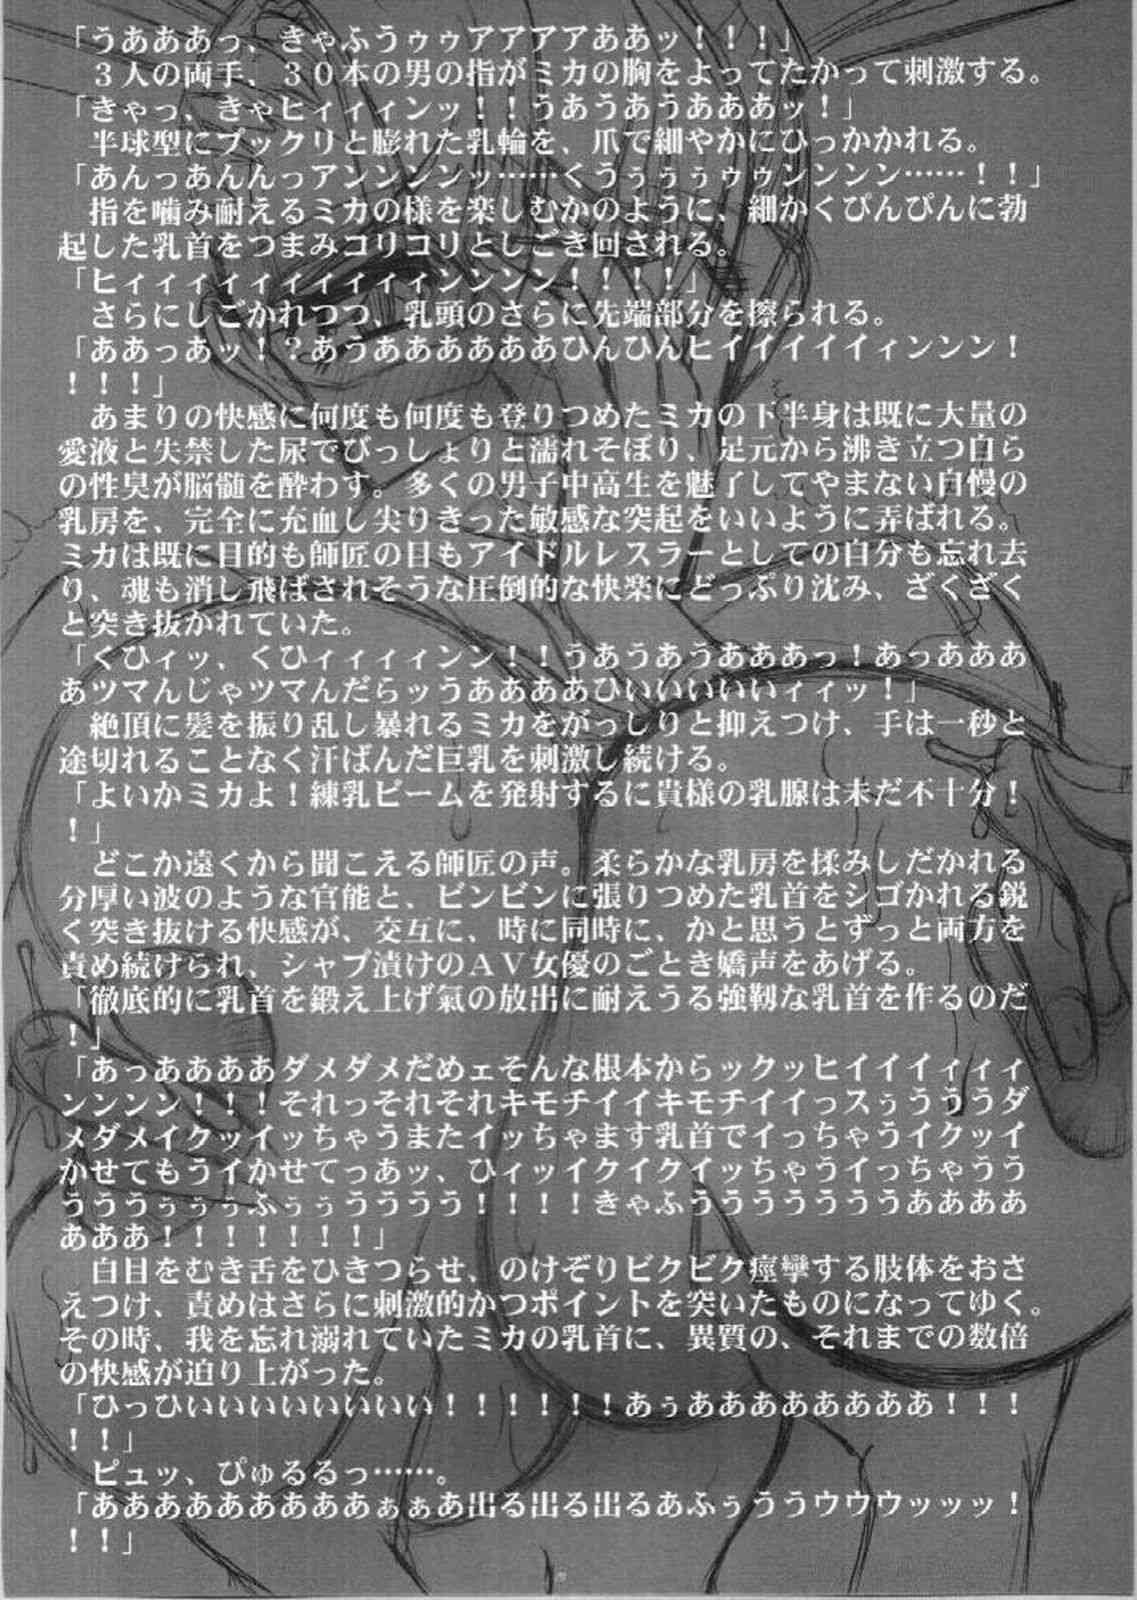 「うあああっ、きゃふうゥゥアアアアああッ！！！」
３人の両手、３０本の男の指がミカの胸をよってたかって刺激する。
「きゃっ、きゃヒィィィンッ！！うあうあうあああッ！」
半球型にプックリと膨れた乳輪を、爪で細やかにひっかかれる。
「あんっあんんっアンンンンッ……くうぅぅぅゥゥンンンン……！！」
指を噛み耐えるミカの様を楽しむかのように、細かくぴんぴんに勃
起した乳首をつまみコリコリとしごき回される。
「ヒィィィィィィィィィィンンンン！！！！」
さらにしごかれつつ、乳頭のさらに先端部分を擦られる。
「ああっあッ！？あうああああああひんひんヒイイイイイィンンン！
！！！」
あまりの快感に何度も何度も登りつめたミカの下半身は既に大量の
愛液と失禁した尿でびっしょりと濡れそぼり、足元から沸き立つ自ら
の性臭が脳髄を酔わす。多くの男子中高生を魅了してやまない自慢の
乳房を、完全に充血し尖りきった敏感な突起をいいように弄ばれる。
ミカは既に目的も師匠の目もアイドルレスラーとしての自分も忘れ去
り、魂も消し飛ばされそうな圧倒的な快楽にどっぷり沈み、ざくざく
と突き抜かれていた。
「くひィッ、くひィィィィンン！！うあうあうあああっ！あっあああ
あツマんじゃツマんだらッうああああひいいいいいィィッ！」
絶頂に髪を振り乱し暴れるミカをがっしりと抑えつけ、手は一秒と
途切れることなく汗ばんだ巨乳を刺激し続ける。
「よいかミカよ！練乳ビームを発射するに貴様の乳腺は未だ不十分！
！」
どこか遠くから聞こえる師匠の声。柔らかな乳房を揉みしだかれる
分厚い波のような官能と、ビンビンに張りつめた乳首をシゴかれる鋭
く突き抜ける快感が、交互に、時に同時に、かと思うとずっと両方を
責め続けられ、シャブ漬けのＡＶ女優のごとき嬌声をあげる。
「徹底的に乳首を鍛え上げ氣の放出に耐えうる強靭な乳首を作るのだ
！」
「あっああああダメダメだめェそんな根本からックッヒイイイィィィ
ンンンン！！！それっそれそれキモチイイキモチイイっスぅうううダ
メダメイクッイッちゃうまたイッちゃます乳首でイっちゃうイクッイ
かせてもうイかせてっあッ、ひィッイクイクイッちゃうイっちゃうう
うううぅぅぅふぅぅうううう！！！！きゃふうううううううああああ
あああ！！！！！！！」
白目をむき舌をひきつらせ、のけぞりビクビク痙攣する肢体をおさ
えつけ、責めはさらに刺激的かつポイントを突いたものになってゆく。
その時、我を忘れ溺れていたミカの乳首に、異質の、それまでの数倍
の快感が迫り上がった。
「ひっひいいいいいいいい！！！！！！あぅああああああああ！！！
！！」
ピュッ、ぴゅるるっ……。
「あああああああああぁぁあ出る出る出るあふぅううウウウッッッ！
！！」